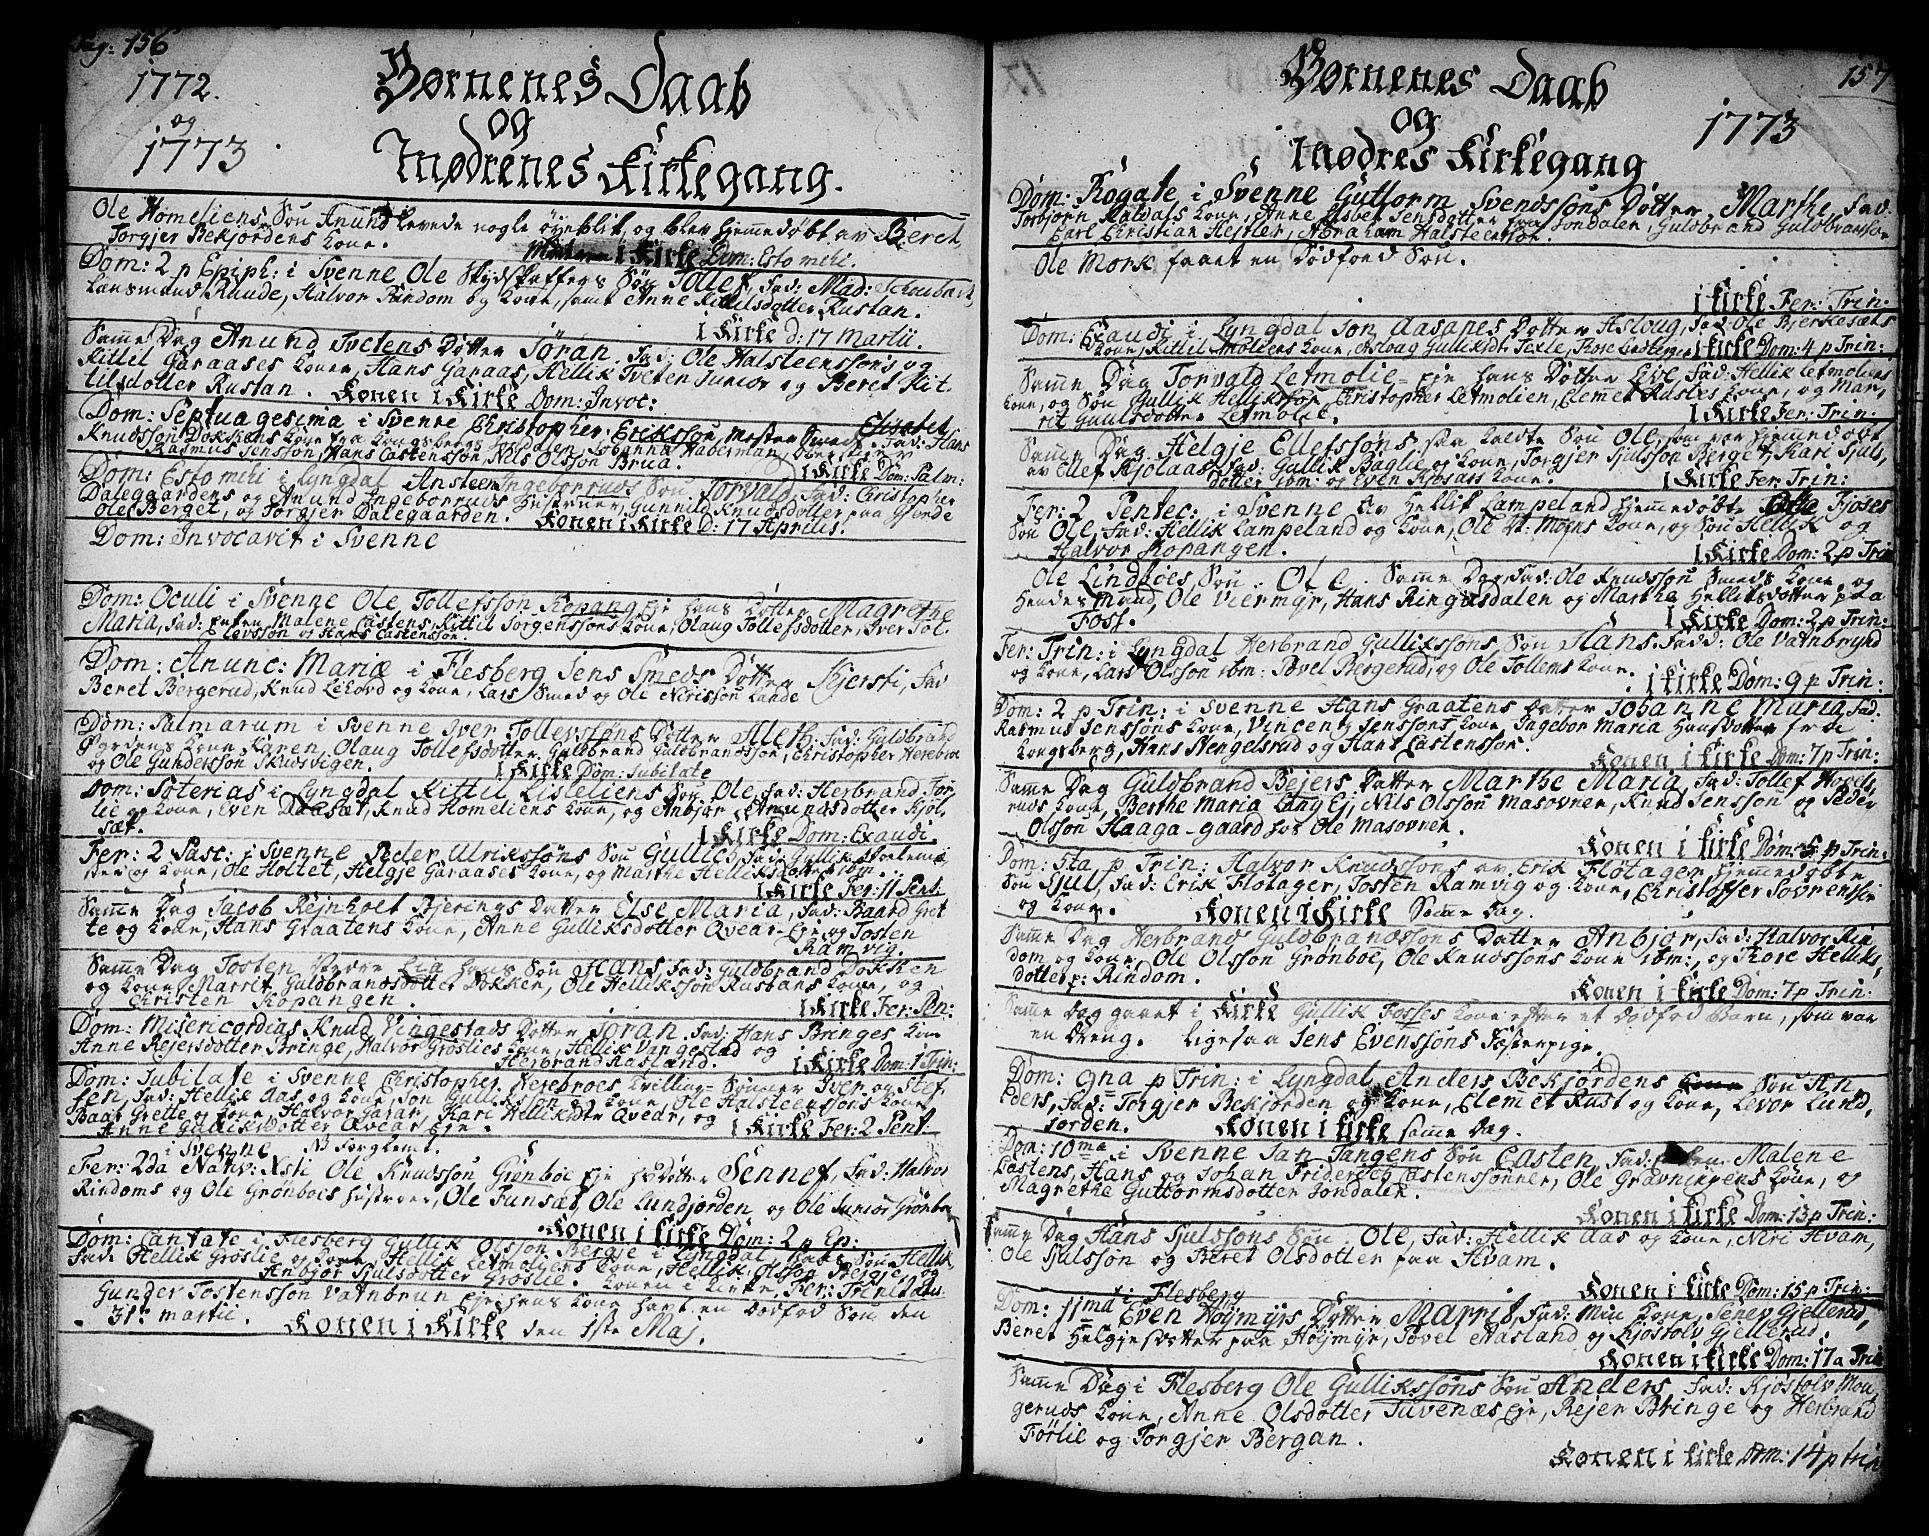 Pag: 156
1772.
og
1773
Børnenes Daab
og
Mødrenes Kirkegang.
Ole Homeliens Søn Anund levede nogle øyeblik, og blev hjemmedøbt av Beret
Torgjer Bekjordens Kone. i Kirke Dom: Esto mihi.
Dom: 2 p Epiph: i Svenne Ole Skydskaffers Søn Tollef, Fad: Mad: Schoubart,
Lansmand Ruude, Halvor Rindom og Kone, samt Anne Kittilsdotter Rustan.
i Kirke d: 17 Martii.
Samme Dag Anund Tvetens Dotter Jøran. Fad: Ole Halsteenssøns og
Kittil Garaases Koner, Hans Garaas, Hellik Tveten Junior og Beret Kit-
tilsdotter Rustan. Konen i Kirke Dom: Invoc:
Dom: Septuagesima i Svenne Christopher Erikssøn, Mester Smeds Elisabet,
Fad: Hans
Knudssøn Dokkens Kone fra Kongsberg, Johanna Haberman,
Rasmus Jenssøn, Hans Castenssøn, Nils Olssøn Brua. i Kirke Dom: Palm:
Dom: Esto mihi i Lyngdal Ansteen Ingeborruds Søn Torvald, Fad: Christopher
Dalegaardens og Anund Ingeborruds Hustruer, Gunnild Knudsdotter paa Gjevde
Ole Berget, og Torgjer Dalegaarden. Konen i Kirke d: 17 Aprilis.
Dom: Invocavit i Svenne
Dom: Oculi i Svenne Ole Tollefssøn Kopang Eje hans Dotter Magrethe
Maria, Fad: Enken Malene Castens, Kittil Torgenssøns Kone, Olaug Tollefsdotter, Iver Tol-
levssøn og Hans Castenssøn.
Dom: Anunc: Mariæ i Flesberg Jens Smeds Dotter Kjersti, Fad
Beret Bergerud, Knud Lekord og Kone, Lars Smed og Ole Nerissøn Laade
Dom: Palmarum i Svenne Iver Tollevssøns Dotter Alleth. Fad: Guldbrand
Øgardens Kone Karen, Olaug Tollefsdotter, Guldbrand Guldbrandssøn, Christopher Herebroe
og Ole Gunderssøn Skudsvigen. i Kirke Dom: Jubilate
Dom: Soterias i Lyngdal Kittil Lisleliens Søn Ole, Fad: Herbrand Før-
lie og Kone, Even Daasæt, Knud Homeliens Kone, og Anbjør Amunasdotter Kjøl-
sæt. i Kirke Dom: Exaudi.
Fer: 2 Pasc: i Svenne Peder Ulrikssøns Søn Gullik, Fad: Gullik Skolema-
ster og Kone, Ole Holtet, Helgje Garaases Kone, og Marthe Helliksdotter ibm.
i Kirke Fer: II Pent:
Samme Dag Jacob Rejnholt Bjerings Dotter Else Maria, Fad: Baard Gret-
te og Kone, Hans Graatens Kone, Anne Gulliksdotter Qvear-Eje og Tosten
Ramvig.
Samme Dag Tosten Vedre Lia hans Søn Hans, Fad: Guldbrand Dokken
og Kone, Marrit Guldbrandsdotter Dokken, Ole Hellikssøn Rustans Kone, og
Christen Kopangen. i Kirke Fer: Pen:
Dom: Misericordias Knud Vingestads Dotter Jøran. Fad: Hans Bringes Kone
Anne Rejersdotter Bringe, Halvor Groslies Kone, Hellik Vangestad og
Herbrand Aasland. i Kirke Dom: 1 Trin:
Dom: Jubilate i Svenne Christopher Herebroes Tvilling-Sønner Iver og Stef-
fen, Fad: Hellik Aas og Kone, Jon Gullikssøn og Kone, Ole Halsteenssøns Kone,
Baar Grette og Kone, Halvor Garar, Kari Helliksdtr Qvear, og
Anne Gulliksdotter Qvear Eje. i Kirke Fer: 2 Pent:
i Svenne NB forglemt.
Fer: 2da Nativ: Xsti Ole Knudssøn Grønboe Eje hs Dotter Sennef, Fad: Halvor
Rindoms og Ole Grønboes Hustruer, Ole Funsæt, Ole Lundjorden og Ole Junior Grønboe
Konen i Kirke Dom: 2 p Ep:
Dom: Cantate i Flesberg Gullik Olssøn Bergje i Lyngdal hans Søn Hellik,
Fad: Hellik Groslie og Kone, Hellik Letmoliens Kone, Hellik Olssøn Bergje, og
Anbjør Sjulsdotter Groslie. Konen i Kirke, Fer: Trinitatis
Gunder Tostenssøn Vatnbrun Eje hans Kone havt en Dødfød Søn den
31te martii. Konen i Kirke den 1ste Maj.
157
1773
Børnenes Daab
og
Mødres Kirkegang
Dom: Rogate i Svenne Guttorm Svendssøns Dotter Marthe, Fad:
Torbjørn Kaldals Kone, Anne Elsbet Jensdotter fra Jondalen, Guldbrand Guldbrandsøn
Carl Christian Hejtler, Abraham Halsteenssøn.
Ole Mork faaet en Dødfød Søn.
i Kirke Fer: Trin:
Dom: Exaudi i Lyngdal Jon Aasanes Dotter Asloug, Fad: Ole Bjerkesæts
Kone, Kittil Moleens Kone, Aslaag Gulliksdtr Texle, Thore Lesteberg i Kirke Dom: 4 p Trin:
Samme Dag Torvald Letmolie-Eje hans Dotter Live, Fad: Hellik Letmoliens
Kone, og Søn Gullik Hellikssøn, Christopher Letmolien, Clemet Rustes Kone, og Mar-
rit Guulsdotter Letmolie. i Kirke Fer: Trin:
Samme Dag Helgje Ellefssøns saa kaldte Søn Ole, som var hjemmedøbt
av Ellef Kjølaas Fad: Gullik Baglie og Kone, Torgjer Sjulssøn Berget, Kari Sjuls-
dotter ibm: og Even Kjøsars Kone. i Kirke Fer: Trin:
Fer: 2 Pentec: i Svenne av Hellik Lampeland hjemmedøbte Fjøses
Søn Ole, Fad: Hellik Lampeland og Kone, Ole Moens Kone, og Søn Hellik og
Halvor Kopangen. i Kirke Dom: 2 p Trin
Ole Lindboes Søn Ole. Samme Dag, Fad: Ole Knudssøn Smeds Kone, og
Hendes Mand, Ole Viermyr, Hans Ringasdalen og Marthe Helliksdotter paa
Foss. i Kirke Dom: 2 p Trin:
Fer: Trin: i Lyngdal Herbrand Gullikssøns Søn Hans. Fad: Ole Vatnbrynd
og Kone, Lars Olssøn ibm: Povel Bergerud, og Ole Tollems Kone.
i Kirke Dom: 9 p Trin:
Dom: 2 p Trin: i Svenne Hans Graatens Datter Johanne Maria, Fad.
Rasmus Jenssøns Kone, Vincenz Jenssøns Kone, Ingebor Maria Hansdotter fra
Kongsberg, Hans Stengelsrud og Hans Castenssøn.
Konen i Kirke Dom: 7 p Trin:
Samme Dag Guldbrand Bejers Datter Marthe Maria, Fad: Tollef Hovds-
ruds Kone, Berthe Maria Lang Ej, Nils Olssøn Masovner, Knud Jenssøn og Peder
Olssøn Haaga-gaard hos Ole Masovner.
Konen i Kirke Dom: 5 p Trin:
Dom: 5ta p Trin: Halvor Knudssøns av Erik Flotager hjemmedøbte
Søn Sjul, Fad: Erik Flotager, Tosten Ramvig og Kone, Christoffer Sovrenssøn
og Kone. Konen i Kirke Samme dag.
Samme Dag Herbrand Guldbrandssøns Datter Anbjør, Fad: Halvor Rin-
dom og Kone, Ole Olssøn Grønboe, Ole Knudssøns Kone ibm:, og Thore Helliks-
dotter p: Rindom. Konen i Kirke Dom: 7 p Trin:
Samme dag gaaet i Kirke Gullik Fosses Kone efter et Dødfød Barn, som var
en Dreng. Ligesaa Jens Evenssøns Fæstepige.
Dom: 9na p Trin: i Lyngdal Anders Bekjordens Søn An-
ders, Fad: Torgjer Bekjorden og Kone, Clemet Rust og Kone, Levor Lund-
jorden. Konen i Kirke samme Dag.
Dom: 10ma i Svenne Jan Tangens Søn Casten, Fad: Enken Malene
Castens, Hans og Johan Friderich Castenssønner, Ole Gravningens Kone, og
Magrethe Guttormsdotter Jondalen.
Konen i Kirke Dom: 13 p Trin:
Samme Dag Hans Sjulssøns Søn Ole, Fad: Hellik Aas og Kone, Niri Hvam,
Ole Sjulssøn og Beret Olsdotter paa Hvam.
Konen i Kirke Dom: 15 p Trin:
Dom: 11ma i Flesberg Even Høymyrs Dotter Marrit, Fad: Min Kone, Senev Gjellerud,
Beret Helgjesdotter paa Høymyr, Povel Aasland og Kjøstolv Gjellerud.
Konen i Kirke Dom: 17 a Trin
Samme Dag i Flesberg Ole Gullikssøns Søn Anders, Fad: Kjøstolv Mou-
geruds Kone, Anne Olsdotter Juvenæs Eje, Rejer Bringe og Herbrand
Førlie og Torgjer Bergan.
Konen i Kirke Dom: 14 p trin